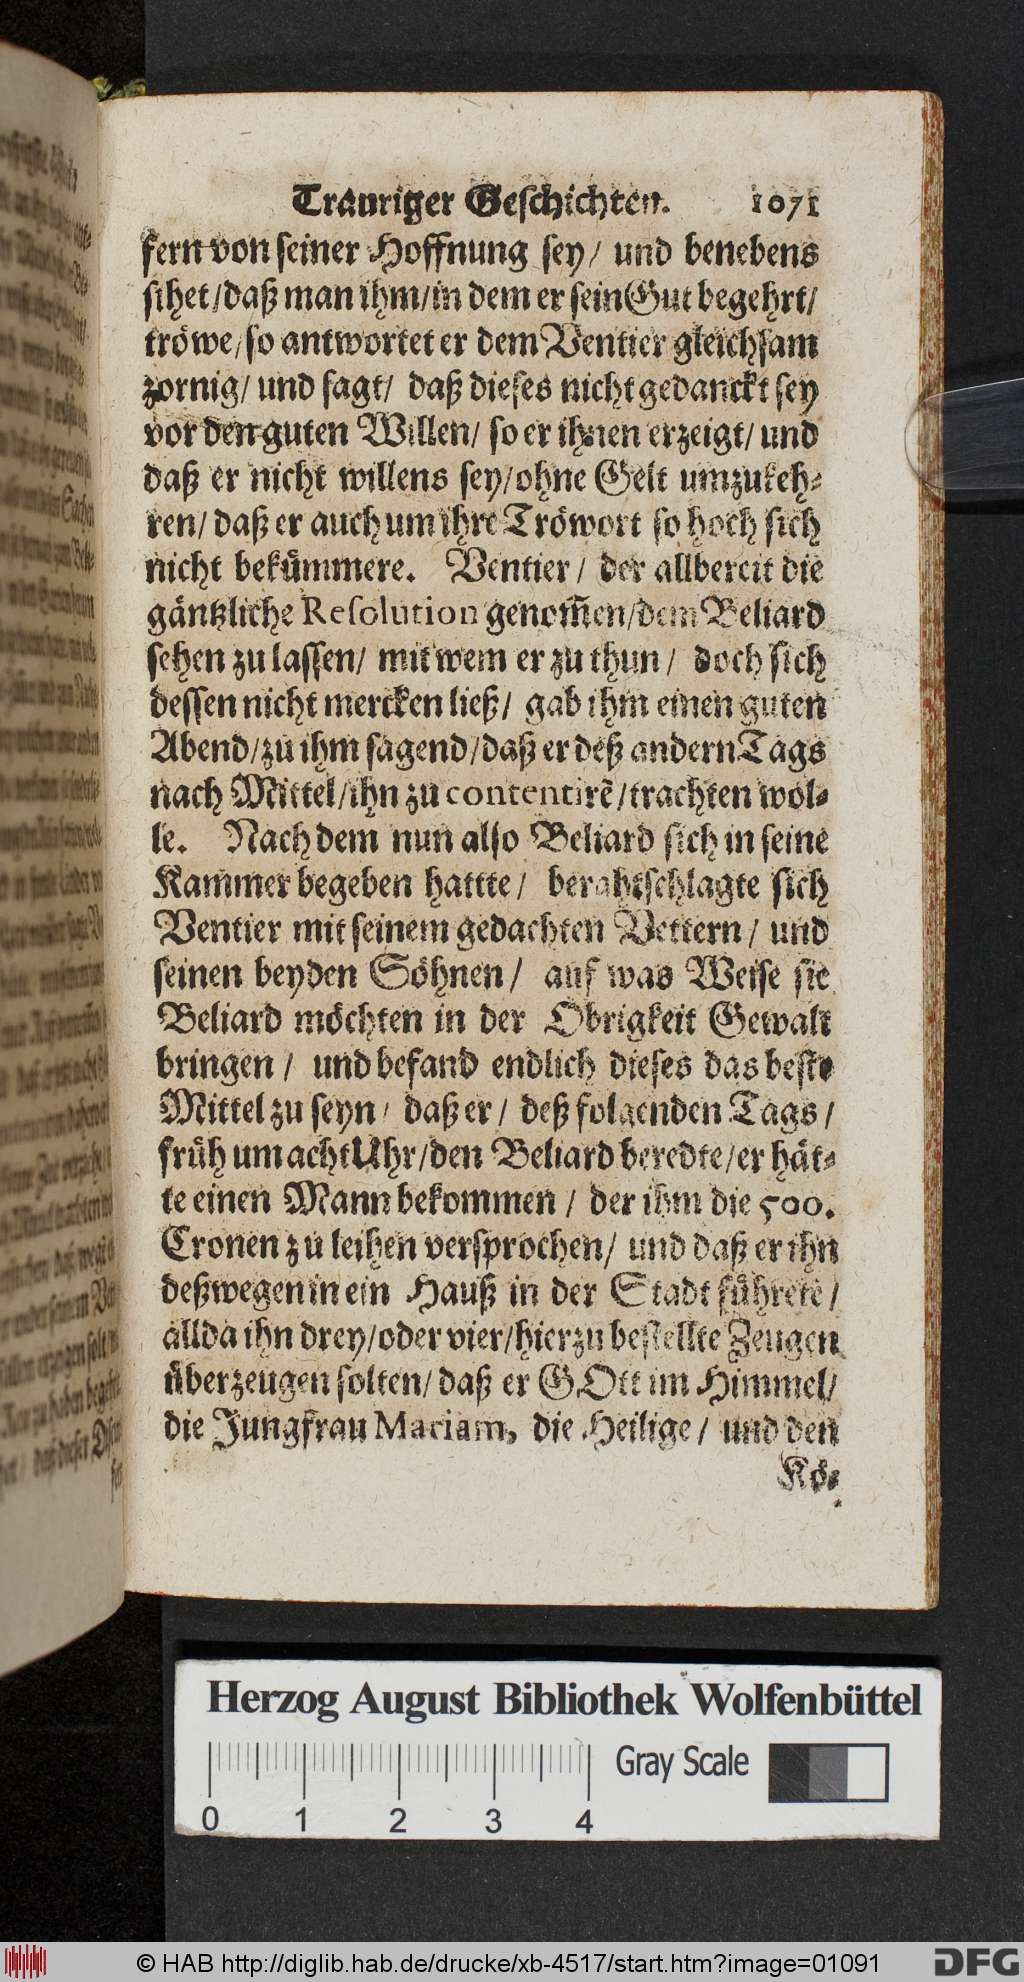 Trauriger Geschichten. 1071
fern von seiner Hoffnung sey/ und benebens
sihet/daß man ihm/in dem er sein Gut begehrt/
tröwe/so antwortet er dem Ventier gleichsam
zornig/ und sagt/ daß dieses nicht gedanckt sey
vor den guten Willen/ so er ihnen erzeigt/ und
daß er nicht willens sey/ohne Gelt umzukeh-
ren/ daß er auch um ihre Tröwort so hoch sich
nicht bekümmere. Ventier/ der allbereit die
gäntzliche Resolution genom̃en/dem Beliard
sehen zu lassen/ mit wem er zu thun/ doch sich
dessen nicht mercken ließ/ gab ihm einen guten
Abend/zu ihm sagend/daß er deß andern Tags
nach Mittel/ihn zu contentirẽ/trachten wol-
le. Nach dem nun also Beliard sich in seine
Kammer begeben hattte/ berahtschlagte sich
Ventier mit seinem gedachten Vettern/ und
seinen beyden Söhnen/ auf was Weise sie
Beliard möchten in der Obrigkeit Gewalt
bringen/ und befand endlich dieses das beste
Mittel zu seyn/ daß er/ deß folgenden Tags/
früh um acht Uhr/den Beliard beredte/er hät-
te einen Mann bekommen/ der ihm die 500.
Cronen zu leihen versprochen/ und daß er ihn
deßwegen in ein Hauß in der Stadt führete/
allda ihn drey/oder vier/hierzu bestellte Zeugen
überzeugen solten/ daß er GOtt im Himmel/
die Jungfrau Mariam, die Heilige/ und den
Kö-
Herzog August Bibliothek Wolfenbüttel
Gray Scale
0 1 2 3 4
© HAB http://diglib.hab.de/drucke/xb-4517/start.htm?image=01091
DFG